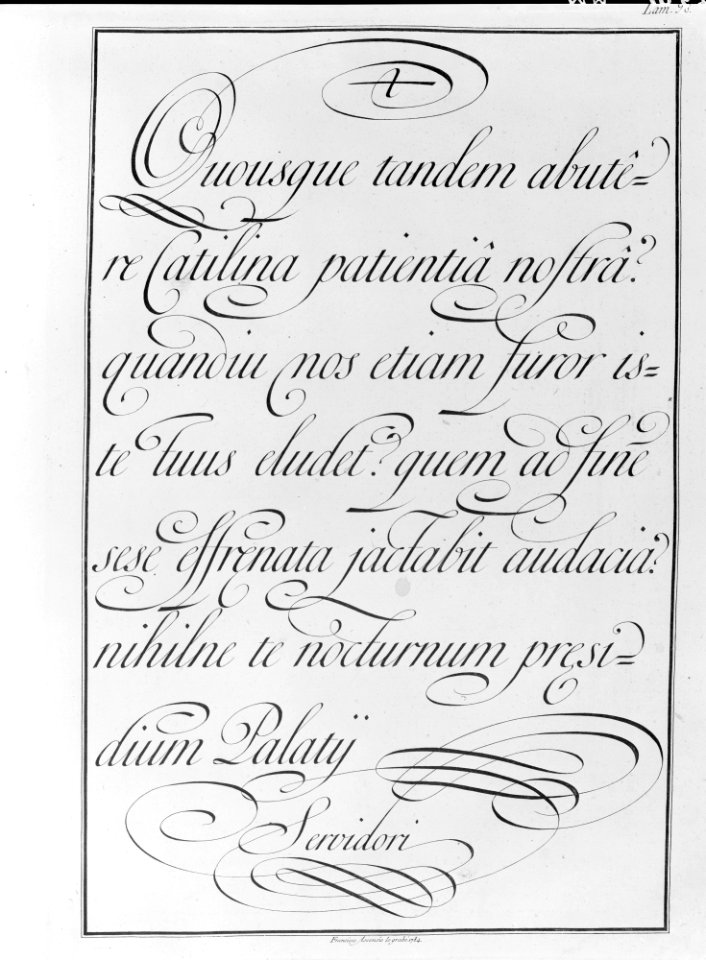 Lam. 98.
Quousque tandem abutê=
re Catilina patientiâ nostrâ?
quandiu nos etiam furor is=
te tuus eludet? quem ad finē
sese effrenata jactabit audacia?
nihilne te nocturnum pręsi=
dium Palatÿ
Servidori
Francisco Assensio lo grabó 1784.